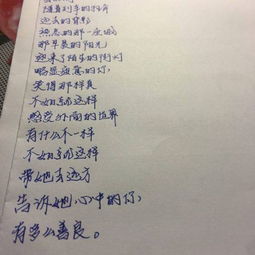 随着列车的摇晃
逝去的背影
想念的那一座城
那早晨的阳光
迎来了陌生的街灯
略显孤寂的你
笑得那样真
不如就这样
感受外面的世界
有什么不一样
不如就这样
带她去远方
告诉她心中的你，
有多么善良。